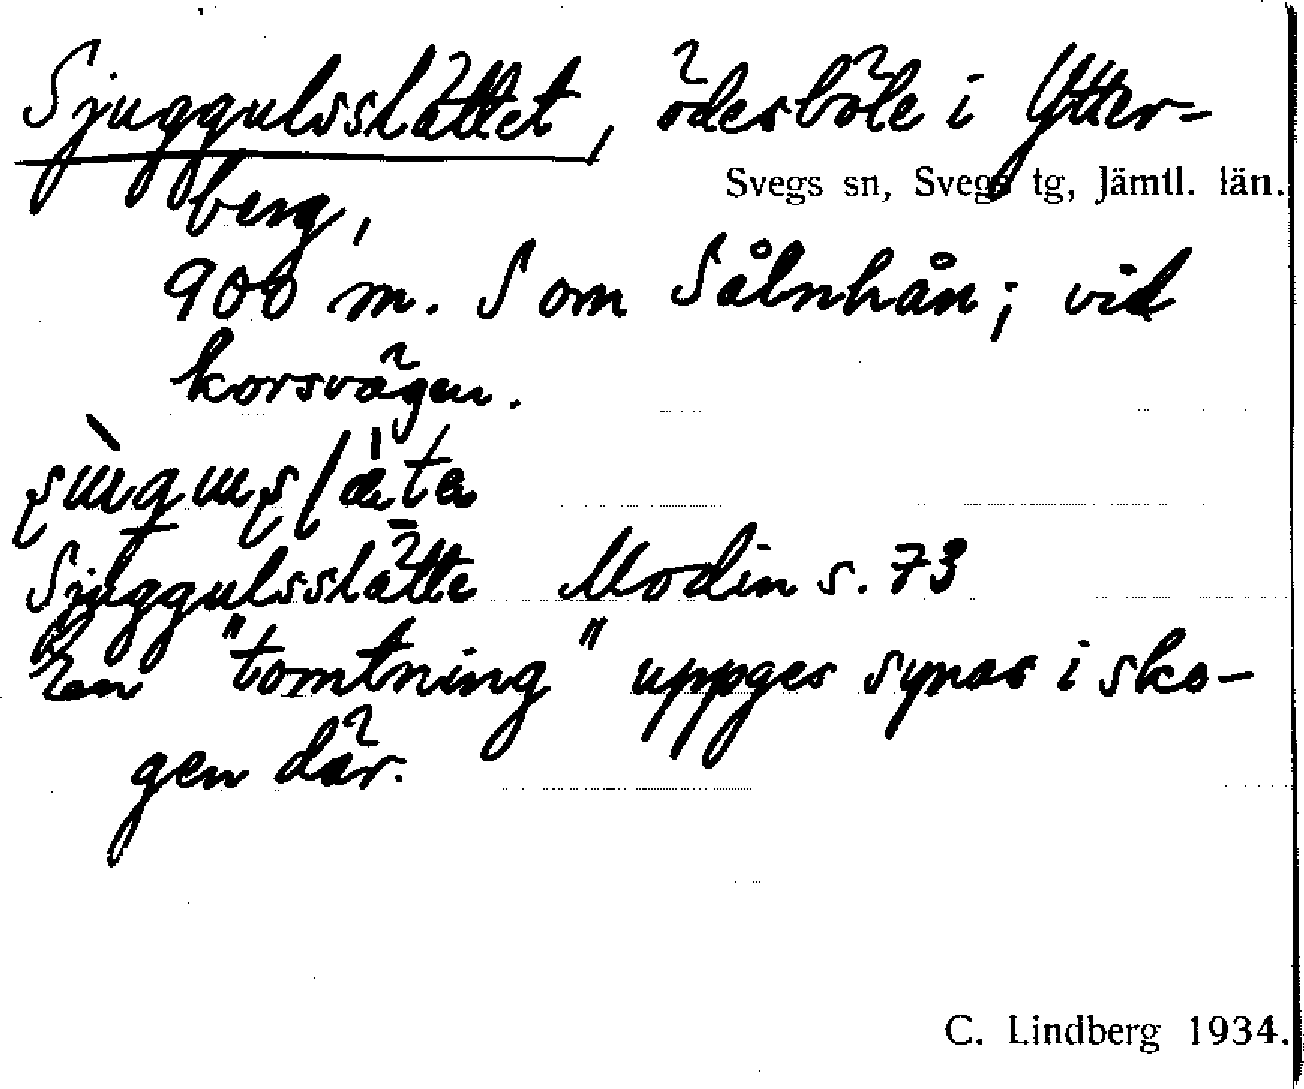 Sjuggulsslättet, ödesböle i Ytter-
Svegs sn, Svegs tg, Jämtl. län.
berg,
900 m. S om Sålnhån; vid
korsvägen.
Sjuggulsslätte Modin s. 73
En "tomtning" uppges synas i sko-
gen där.
C. Lindberg 1934.